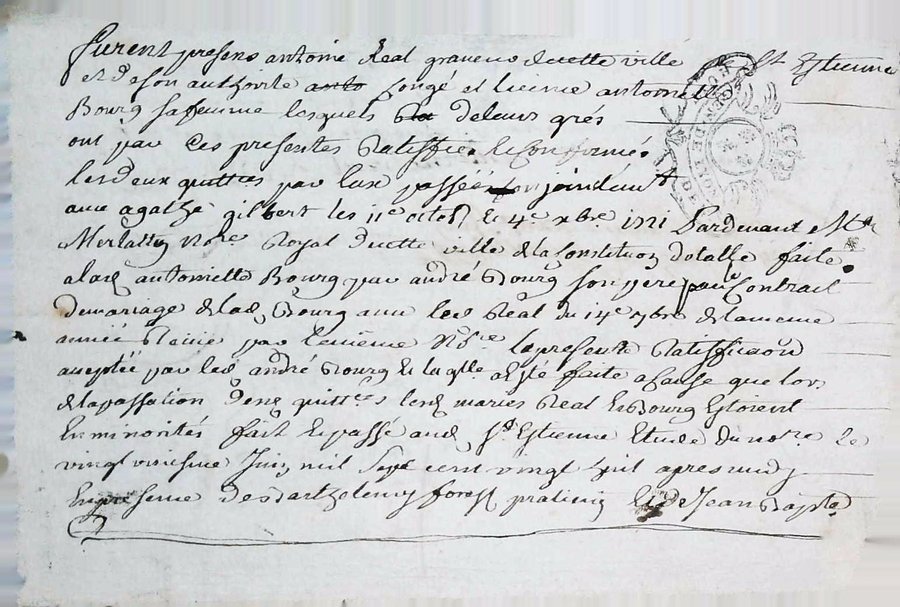 furent presens antoine Real graveur decette ville St Estienne
et deson authorité congé et licence antoinette
Bourg sa femme lesquels deleurs grés
ont par ces presentes Ratiffiée & Confirmée
lesdeux quittces par eux passées conjointemt
avec agathe gilbert les 11e octob & 4e xbre 1721 Pardevant Me
Merlatton Nore Royal decette ville dela Constitution dotalle faite
alad antoinette Bourg par andré Bourg son pere par Contrait
Demariage delad Bourg avec led Real du 14e 7bre delamême
année Receu par lemême Nre lapresente Ratifficaon
aceptée par led andré Bourg & laqlle a Esté faite acause que lors
delapassation desd quittces lesd mariés Real & Bourg Estoient
En minorités fait & passé aud St Estienne Etude du nore Le
vingt Juin mil Sept cent vingt huit apres midy
En presence de Barthelemy forest praticien & de Jean Bapte